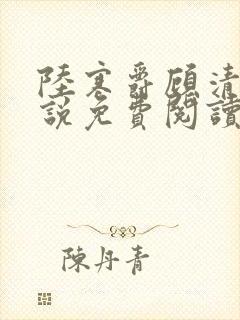 陸寒爵顧清
說免費閱讀
陳丹青